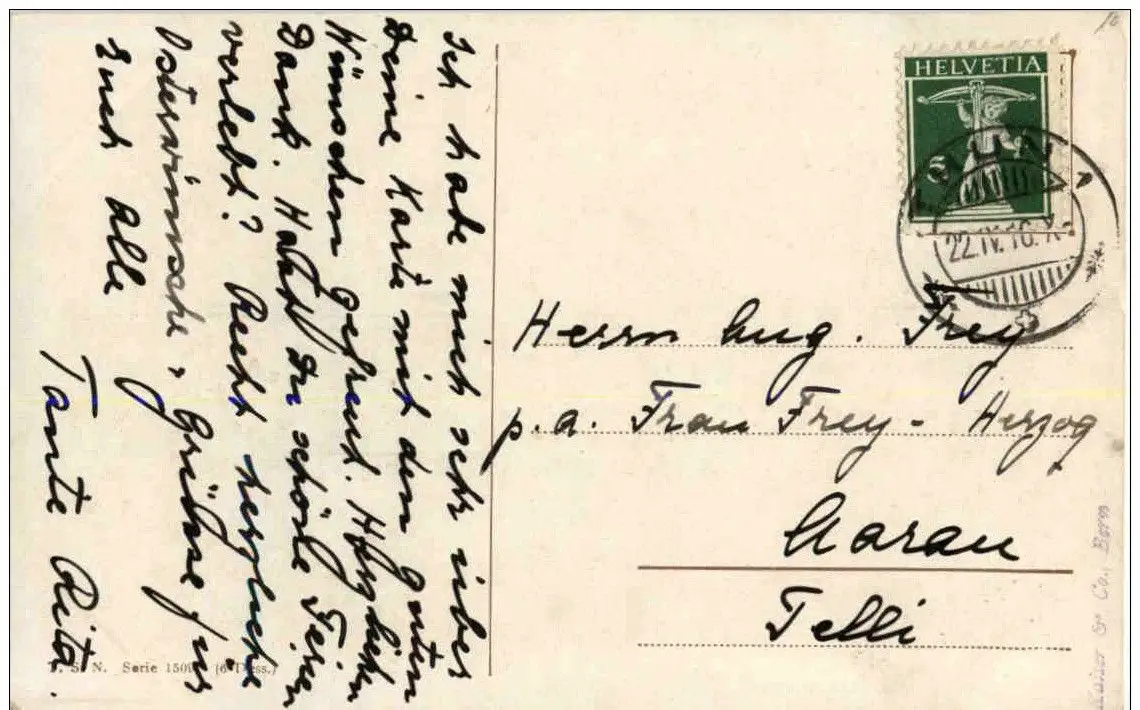 Ich habe mich sehr über
Deine Karte mit den guten
Wünschen gefreut. Herzlichen
Dank. Hatst Du schöne Ferien
verlebt? Recht herzliche
Osterwünsche, Grüsse für
Euch alle
Tante Rita.
HELVETIA
5
22.IV.16.X-
Herrn Aug. Frey
p.a. Frau Frey-Herzog
Aarau
Telli
T. S. N. Serie 150 (6 Dess.)
Kaiser & Co., Bern